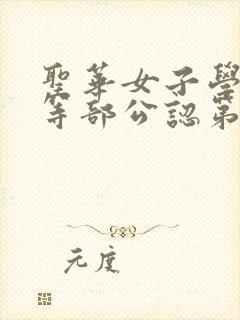 聖華女子學
等部公認第
元度